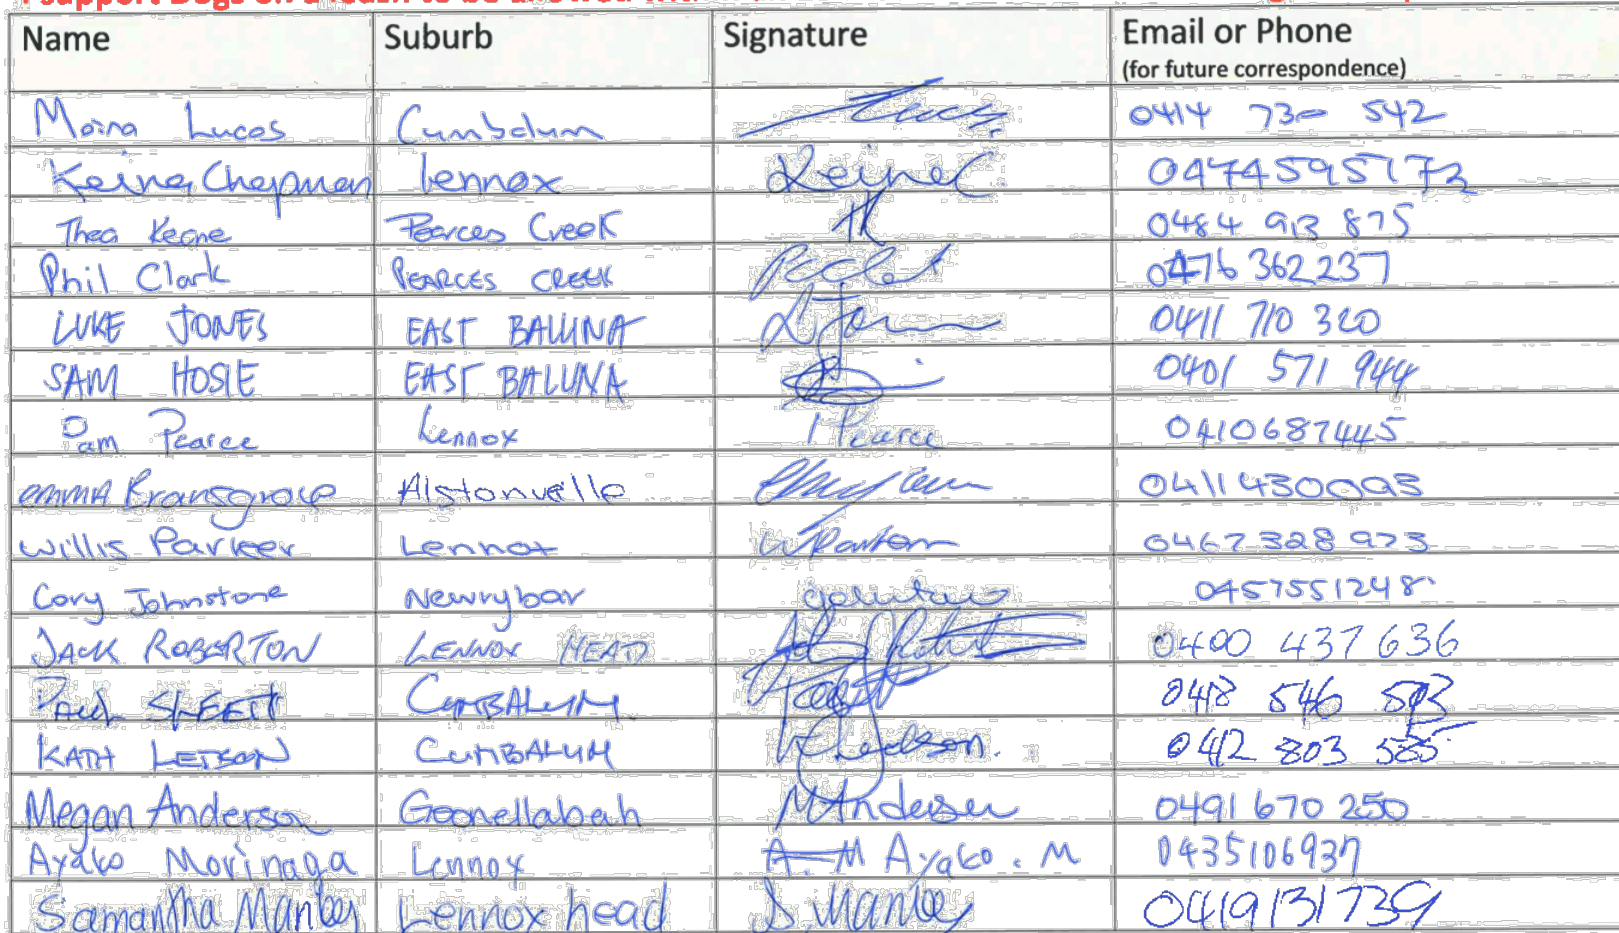 I support Dogs on a Leash to be allowed
Name Suburb Signature Email or Phone
(for future correspondence)
Moira Lucas Cumbalum 0414 730 542
Keina Chapman Lennox Keina C 0474595172
Thea Keane Pearces Creek TK 0484 913 875
Phil Clark PEARCES CREEK 0476 362237
LUKE JONES EAST BALLINA 0411 710 320
SAM HOSIE EAST BALLINA 0401 571 944
Pam Pearce Lennox Pearce 0410687445
emmA Bransgrove Alstonville 0411430093
Willis Parker Lennox 0467 328 973
Cory Johnstone Newrybar 0457551248
JACK ROBERTON LENNOX HEAD 0400 437 636
PAUL SKEET CUMBALUM 0418 546
KATH LETSON CUMBALUM 0412 803 585
Megan Anderson Goonellabah M Anderson 0491 670 250
Ayako Morinaga Lennox A. M Ayako. M 0435106937
Samantha Manley Lennox head S. Manley 0419131739